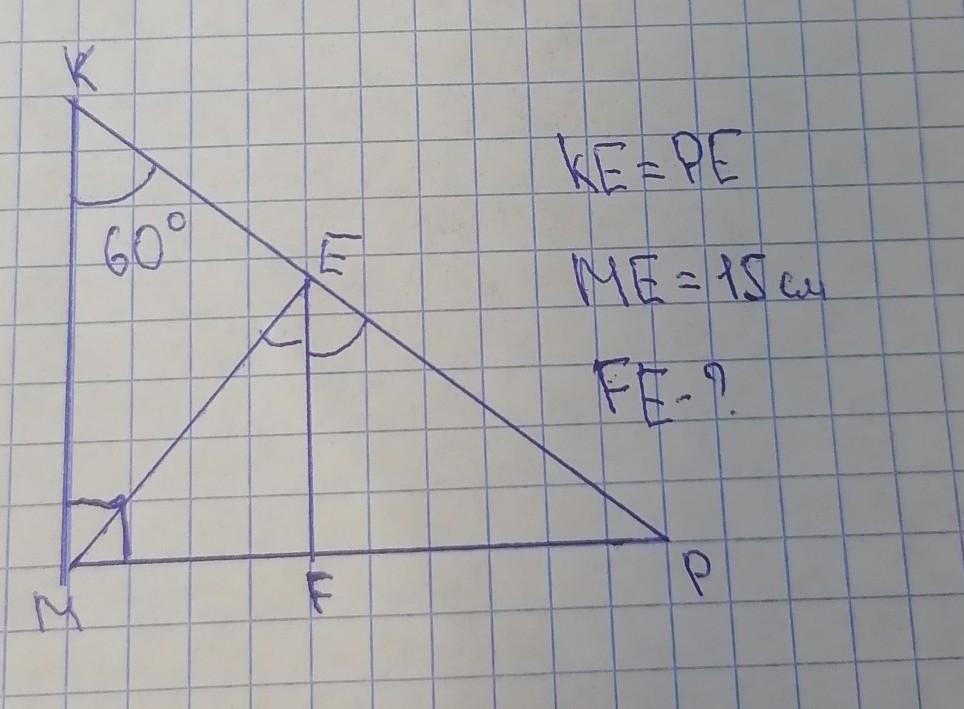 K
60°
E
M
F
P
KE = PE
ME = 15 см
FE - ?